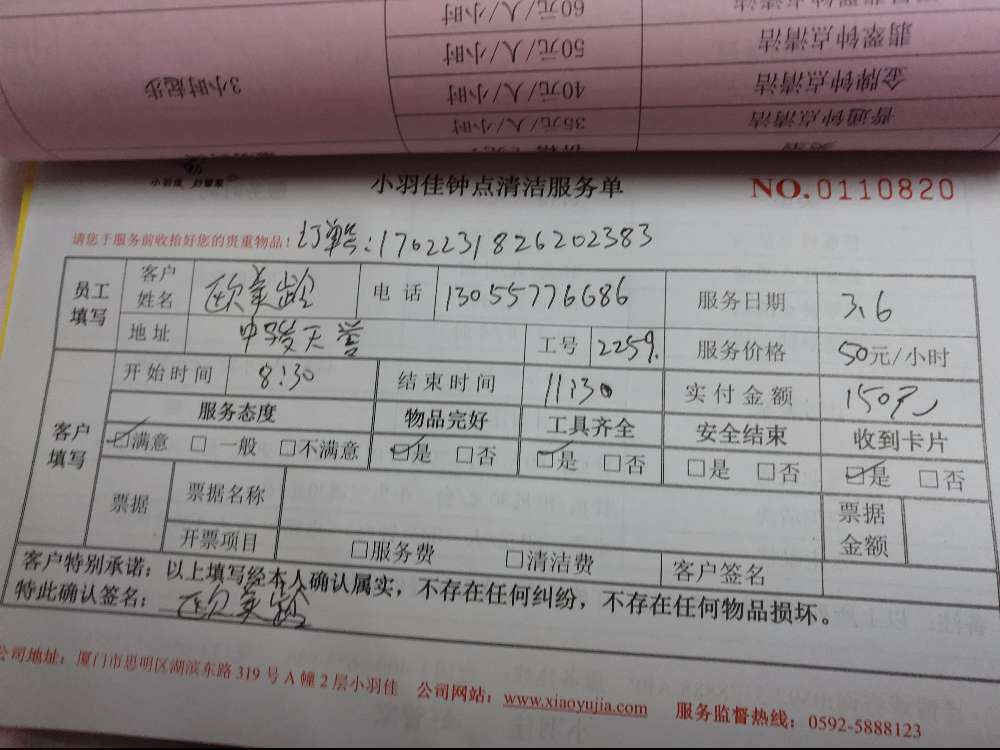 60元/人/小时
50元/人/小时 翡翠钟点清洁
3小时起步 40元/人/小时 金牌钟点清洁
35元/人/小时 普通钟点清洁
小羽佳 好管家
小羽佳钟点清洁服务单 NO.0110820
请您于服务前收拾好您的贵重物品! 订单号:1702231826202383
员工填写 客户姓名 欧美龄 电话 13055776686 服务日期 3.6
地址 中骏天誉 工号 2259. 服务价格 50元/小时
客户填写 开始时间 8:30 结束时间 11:30 实付金额 150元
服务态度 物品完好 工具齐全 安全结束 收到卡片
☑满意 □一般 □不满意 ☑是 □否 ☑是 □否 □是 □否 ☑是 □否
票据 票据名称 票据金额
开票项目 □服务费 □清洁费 客户签名
客户特别承诺:以上填写经本人确认属实,不存在任何纠纷,不存在任何物品损坏。
特此确认签名: 欧美龄
公司地址:厦门市思明区湖滨东路319号A幢2层小羽佳 公司网站:www.xiaoyujia.com 服务监督热线:0592-5888123